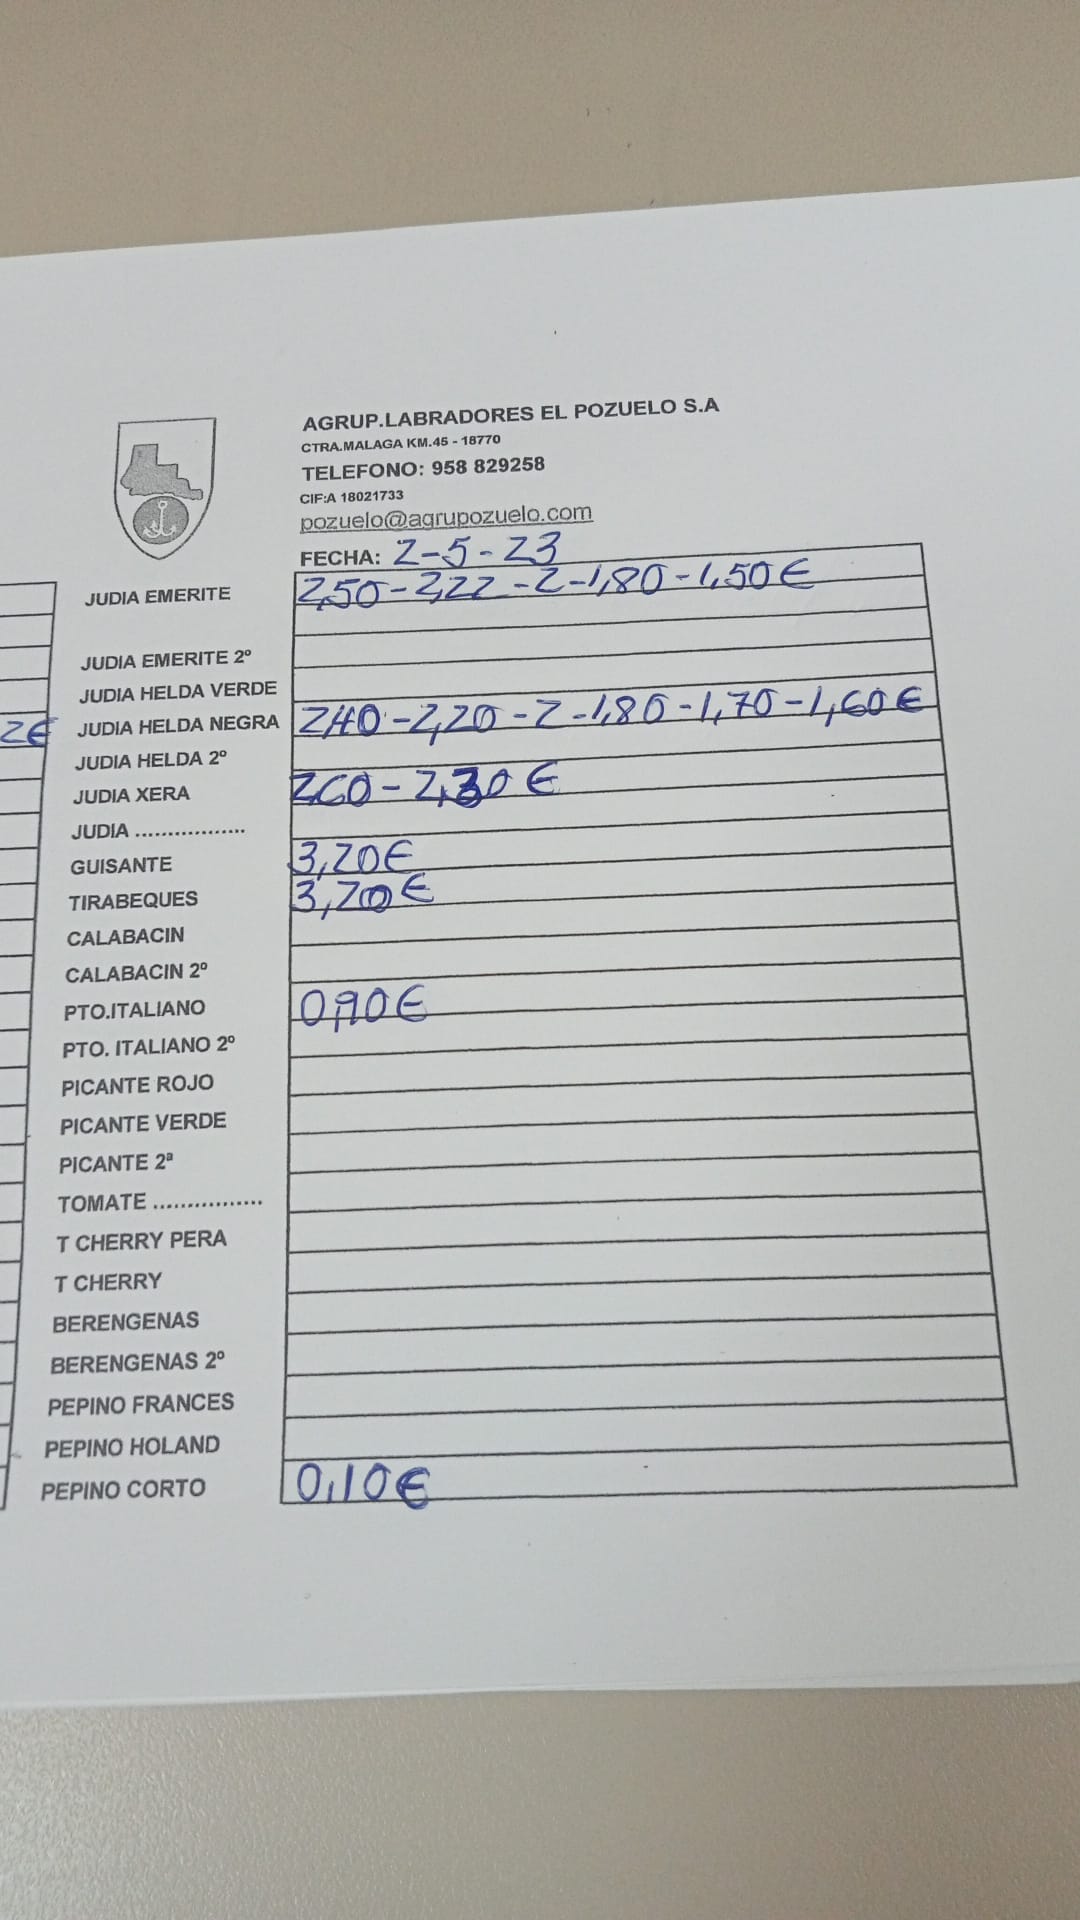 AGRUP.LABRADORES EL POZUELO S.A
CTRA.MALAGA KM.45 - 18770
TELEFONO: 958 829258
CIF:A 18021733
pozuelo@agrupozuelo.com
FECHA: 2-5-23
JUDIA EMERITE 2,50-2,22-2-1,80-1,50€
JUDIA EMERITE 2º
JUDIA HELDA VERDE
2€ JUDIA HELDA NEGRA 2,40-2,20-2-1,80-1,70-1,60€
JUDIA HELDA 2º
JUDIA XERA 2,60-2,30€
JUDIA .................
GUISANTE 3,20€
TIRABEQUES 3,20€
CALABACIN
CALABACIN 2º
PTO.ITALIANO 0,90€
PTO. ITALIANO 2º
PICANTE ROJO
PICANTE VERDE
PICANTE 2ª
TOMATE ................
T CHERRY PERA
T CHERRY
BERENGENAS
BERENGENAS 2º
PEPINO FRANCES
PEPINO HOLAND
PEPINO CORTO 0,10€